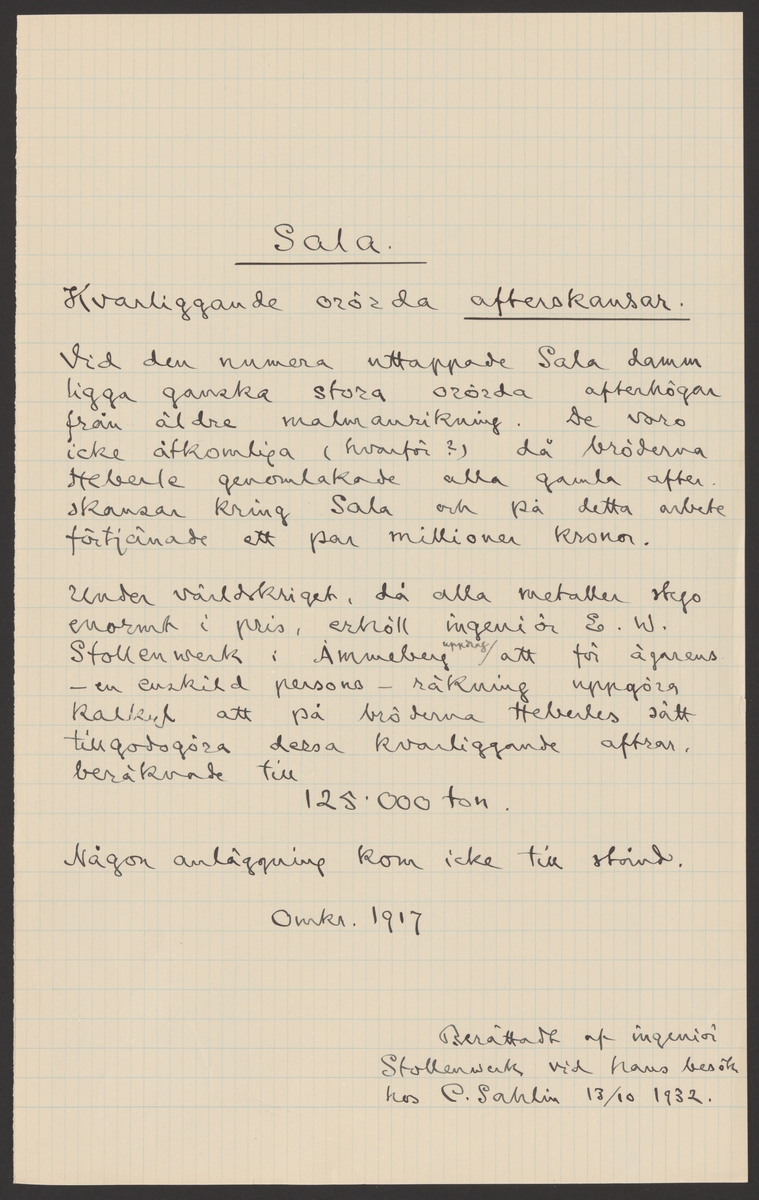 Sala.
Kvarliggande orörda afterskansar.
Vid den numera uttappade Sala damm
ligga ganska stora orörda afterhögar
från äldre malmanrikning. De voro
icke åtkomliga (hvarför?) då bröderna
Heberle genomlakade alla gamla after-
skansar kring Sala och på detta arbete
förtjänade ett par millioner kronor.
Under världskriget, då alla metaller stego
enormt i pris, erhöll ingeniör E. W.
Stollenwerk i Åmmeberg uppdrag att för ägarens
– en enskild persons – räkning uppgöra
kalkyl att på bröderna Heberles sätt
tillgodogöra dessa kvarliggande aftrar,
beräknade till
125.000 ton.
Någon anläggning kom icke till stånd.
Omkr. 1917
Berättadt af ingeniör
Stollenwerk vid hans besök
hos C. Sahlin 13/10 1932.